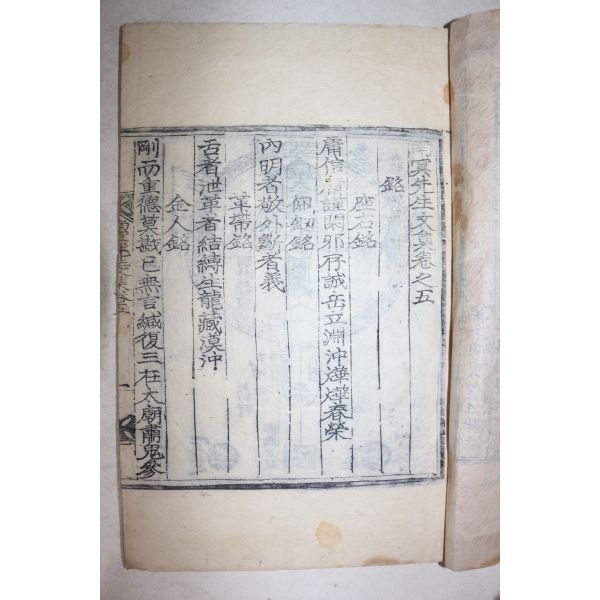 南冥先生文集卷之五
銘
座右銘
庸信庸謹閑邪存誠岳立淵沖燁燁春榮
佩劍銘
內明者敬外斷者義
革帶銘
舌者泄革者結縛生龍藏漠沖
金人銘
剛而重德莫戡已無言緘復三在太廟肅鬼參